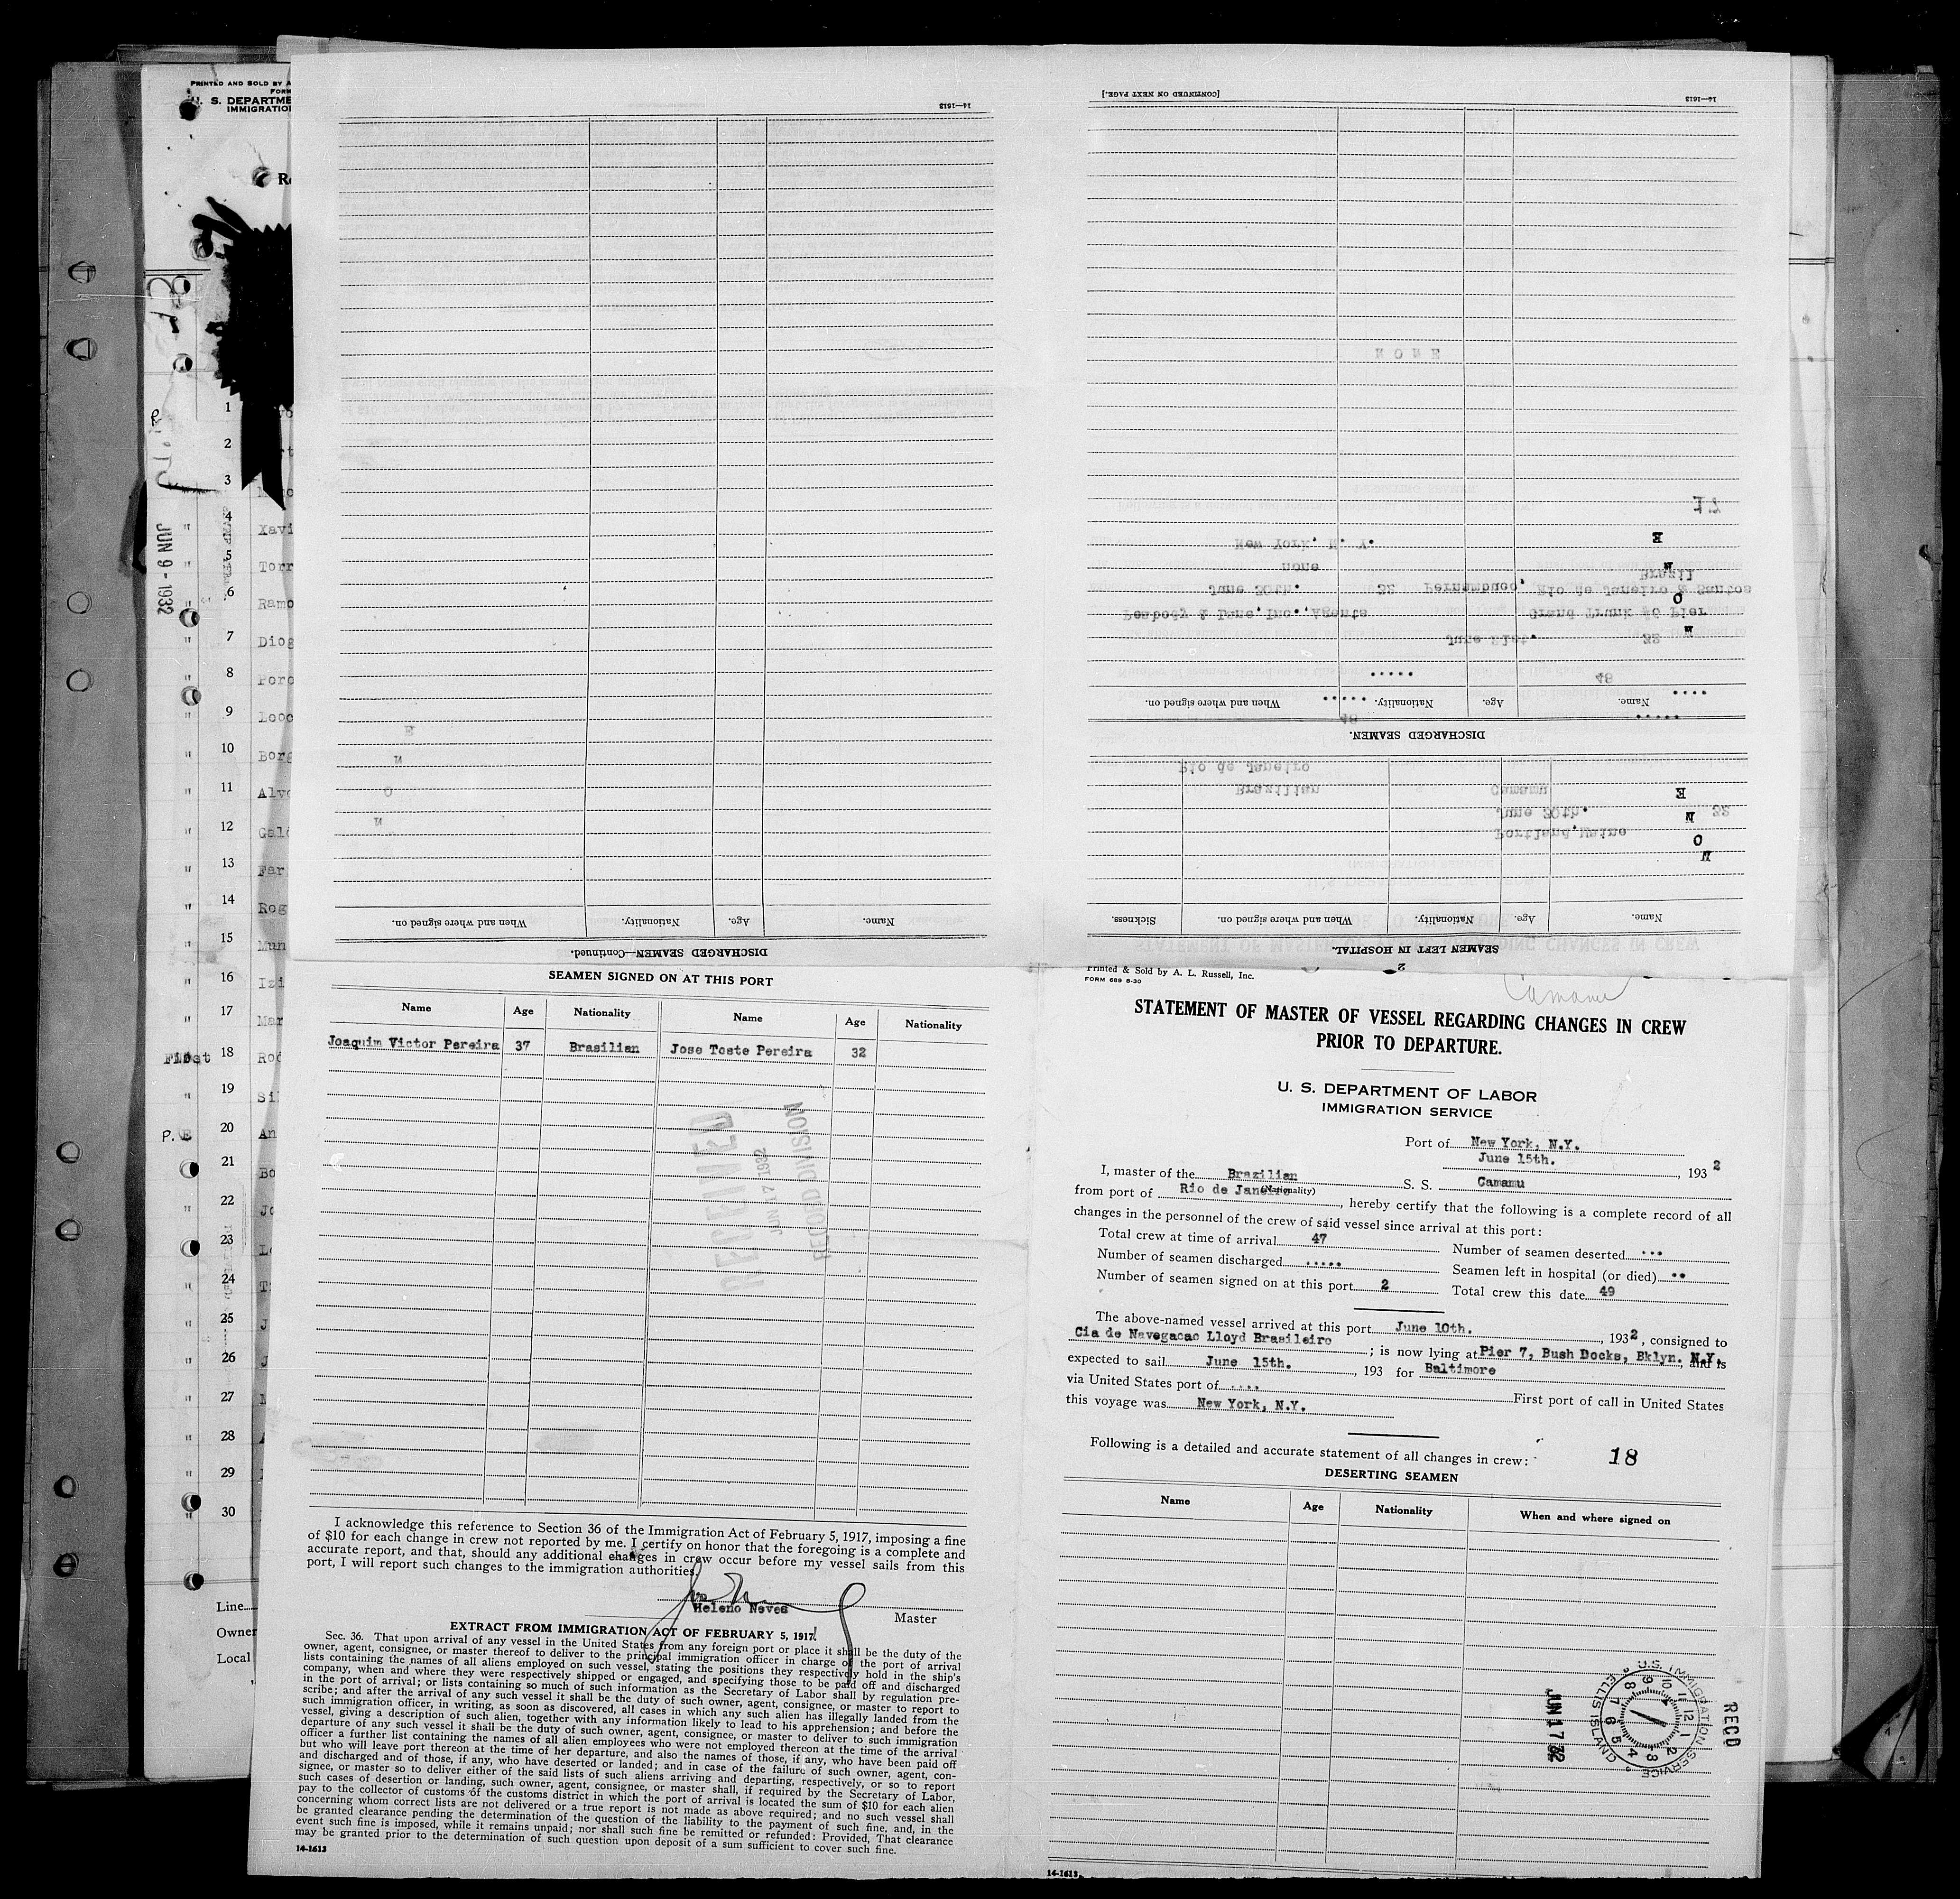 PRINTED AND SOLD BY A
FORM
U. S. DEPARTME
IMMIGRATIO
JUN 9 - 1932
1
2
3
4 Xavi
5 Torr
6 Ramo
7 Diog
8
9
10 Borg
11 Alvo
12
13 Far
14 Rog
15 Mun
16 Izi
17 Mar
First 18 Rod
19 Sil
20 An
21 Bo
22 Jo
23
24
25 J
26 J
27
28
29
30
Line
Owner
Local
14—1613
DISCHARGED SEAMEN—Continued.
Name. Age. Nationality. When and where signed on.
N
O
N
E
[CONTINUED ON NEXT PAGE.]
14—1613
2
SEAMEN LEFT IN HOSPITAL.
Name. Age. Nationality. When and where signed on. Sickness.
N
O
N
E
DISCHARGED SEAMEN.
Name. Age. Nationality. When and where signed on.
N
O
N
E
STATEMENT OF MASTER
CHANGES IN CREW
Portland, Maine
June 20th. 32
Brazilian Camamu
Rio de Janeiro
48
48
June 21st. 32
Peabody & Lane, Inc., Agents Grand Trunk #6 Pier
June 30th. 32 Pernambuco, Rio de Janeiro & Santos
none Brazil
New York, N. Y.
17
NONE
SEAMEN SIGNED ON AT THIS PORT
Name Age Nationality Name Age Nationality
Joaquim Victor Pereira 37 Brasilian Jose Toste Pereira 32
RECEIVED
JUN 17 1932
RECORD DIVISION
I acknowledge this reference to Section 36 of the Immigration Act of February 5, 1917, imposing a fine
of $10 for each change in crew not reported by me. I certify on honor that the foregoing is a complete and
accurate report, and that, should any additional changes in crew occur before my vessel sails from this
port, I will report such changes to the immigration authorities.
Heleno Neves
Master
EXTRACT FROM IMMIGRATION ACT OF FEBRUARY 5, 1917.
Sec. 36. That upon arrival of any vessel in the United States from any foreign port or place it shall be the duty of the
owner, agent, consignee, or master thereof to deliver to the principal immigration officer in charge of the port of arrival
lists containing the names of all aliens employed on such vessel, stating the positions they respectively hold in the ship's
company, when and where they were respectively shipped or engaged, and specifying those to be paid off and discharged
in the port of arrival; or lists containing so much of such information as the Secretary of Labor shall by regulation pre-
scribe; and after the arrival of any such vessel it shall be the duty of such owner, agent, consignee, or master to report to
such immigration officer, in writing, as soon as discovered, all cases in which any such alien has illegally landed from the
vessel, giving a description of such alien, together with any information likely to lead to his apprehension; and before the
departure of any such vessel it shall be the duty of such owner, agent, consignee, or master to deliver to such immigration
officer a further list containing the names of all alien employees who were not employed thereon at the time of the arrival
but who will leave port thereon at the time of her departure, and also the names of those, if any, who have been paid off
and discharged and of those, if any, who have deserted or landed; and in case of the failure of such owner, agent, con-
signee, or master so to deliver either of the said lists of such aliens arriving and departing, respectively, or so to report
such cases of desertion or landing, such owner, agent, consignee, or master shall, if required by the Secretary of Labor,
pay to the collector of customs of the customs district in which the port of arrival is located the sum of $10 for each alien
concerning whom correct lists are not delivered or a true report is not made as above required; and no such vessel shall
be granted clearance pending the determination of the question of the liability to the payment of such fine, and, in the
event such fine is imposed, while it remains unpaid; nor shall such fine be remitted or refunded: Provided, That clearance
may be granted prior to the determination of such question upon deposit of a sum sufficient to cover such fine.
14-1613
Printed & Sold by A. L. Russell, Inc.
FORM 689 8-30
Camamu
STATEMENT OF MASTER OF VESSEL REGARDING CHANGES IN CREW
PRIOR TO DEPARTURE.
U. S. DEPARTMENT OF LABOR
IMMIGRATION SERVICE
Port of New York, N.Y.
June 15th. , 193 2
I, master of the Brazilian S. S. Camamu
(Nationality)
from port of Rio de Janeiro, hereby certify that the following is a complete record of all
changes in the personnel of the crew of said vessel since arrival at this port:
Total crew at time of arrival 47 Number of seamen deserted ...
Number of seamen discharged ..... Seamen left in hospital (or died) ..
Number of seamen signed on at this port 2 Total crew this date 49
The above-named vessel arrived at this port June 10th. , 1932, consigned to
Cia de Navegacao Lloyd Brasileiro ; is now lying at Pier 7, Bush Docks, Bklyn. N.Y., and is
expected to sail June 15th. , 193 for Baltimore
via United States port of .... First port of call in United States
this voyage was New York, N.Y.
Following is a detailed and accurate statement of all changes in crew: 18
DESERTING SEAMEN
Name Age Nationality When and where signed on
RECD
U.S. IMMIGRATION SERVICE
ELLIS ISLAND
JUN 17 32
14-1613